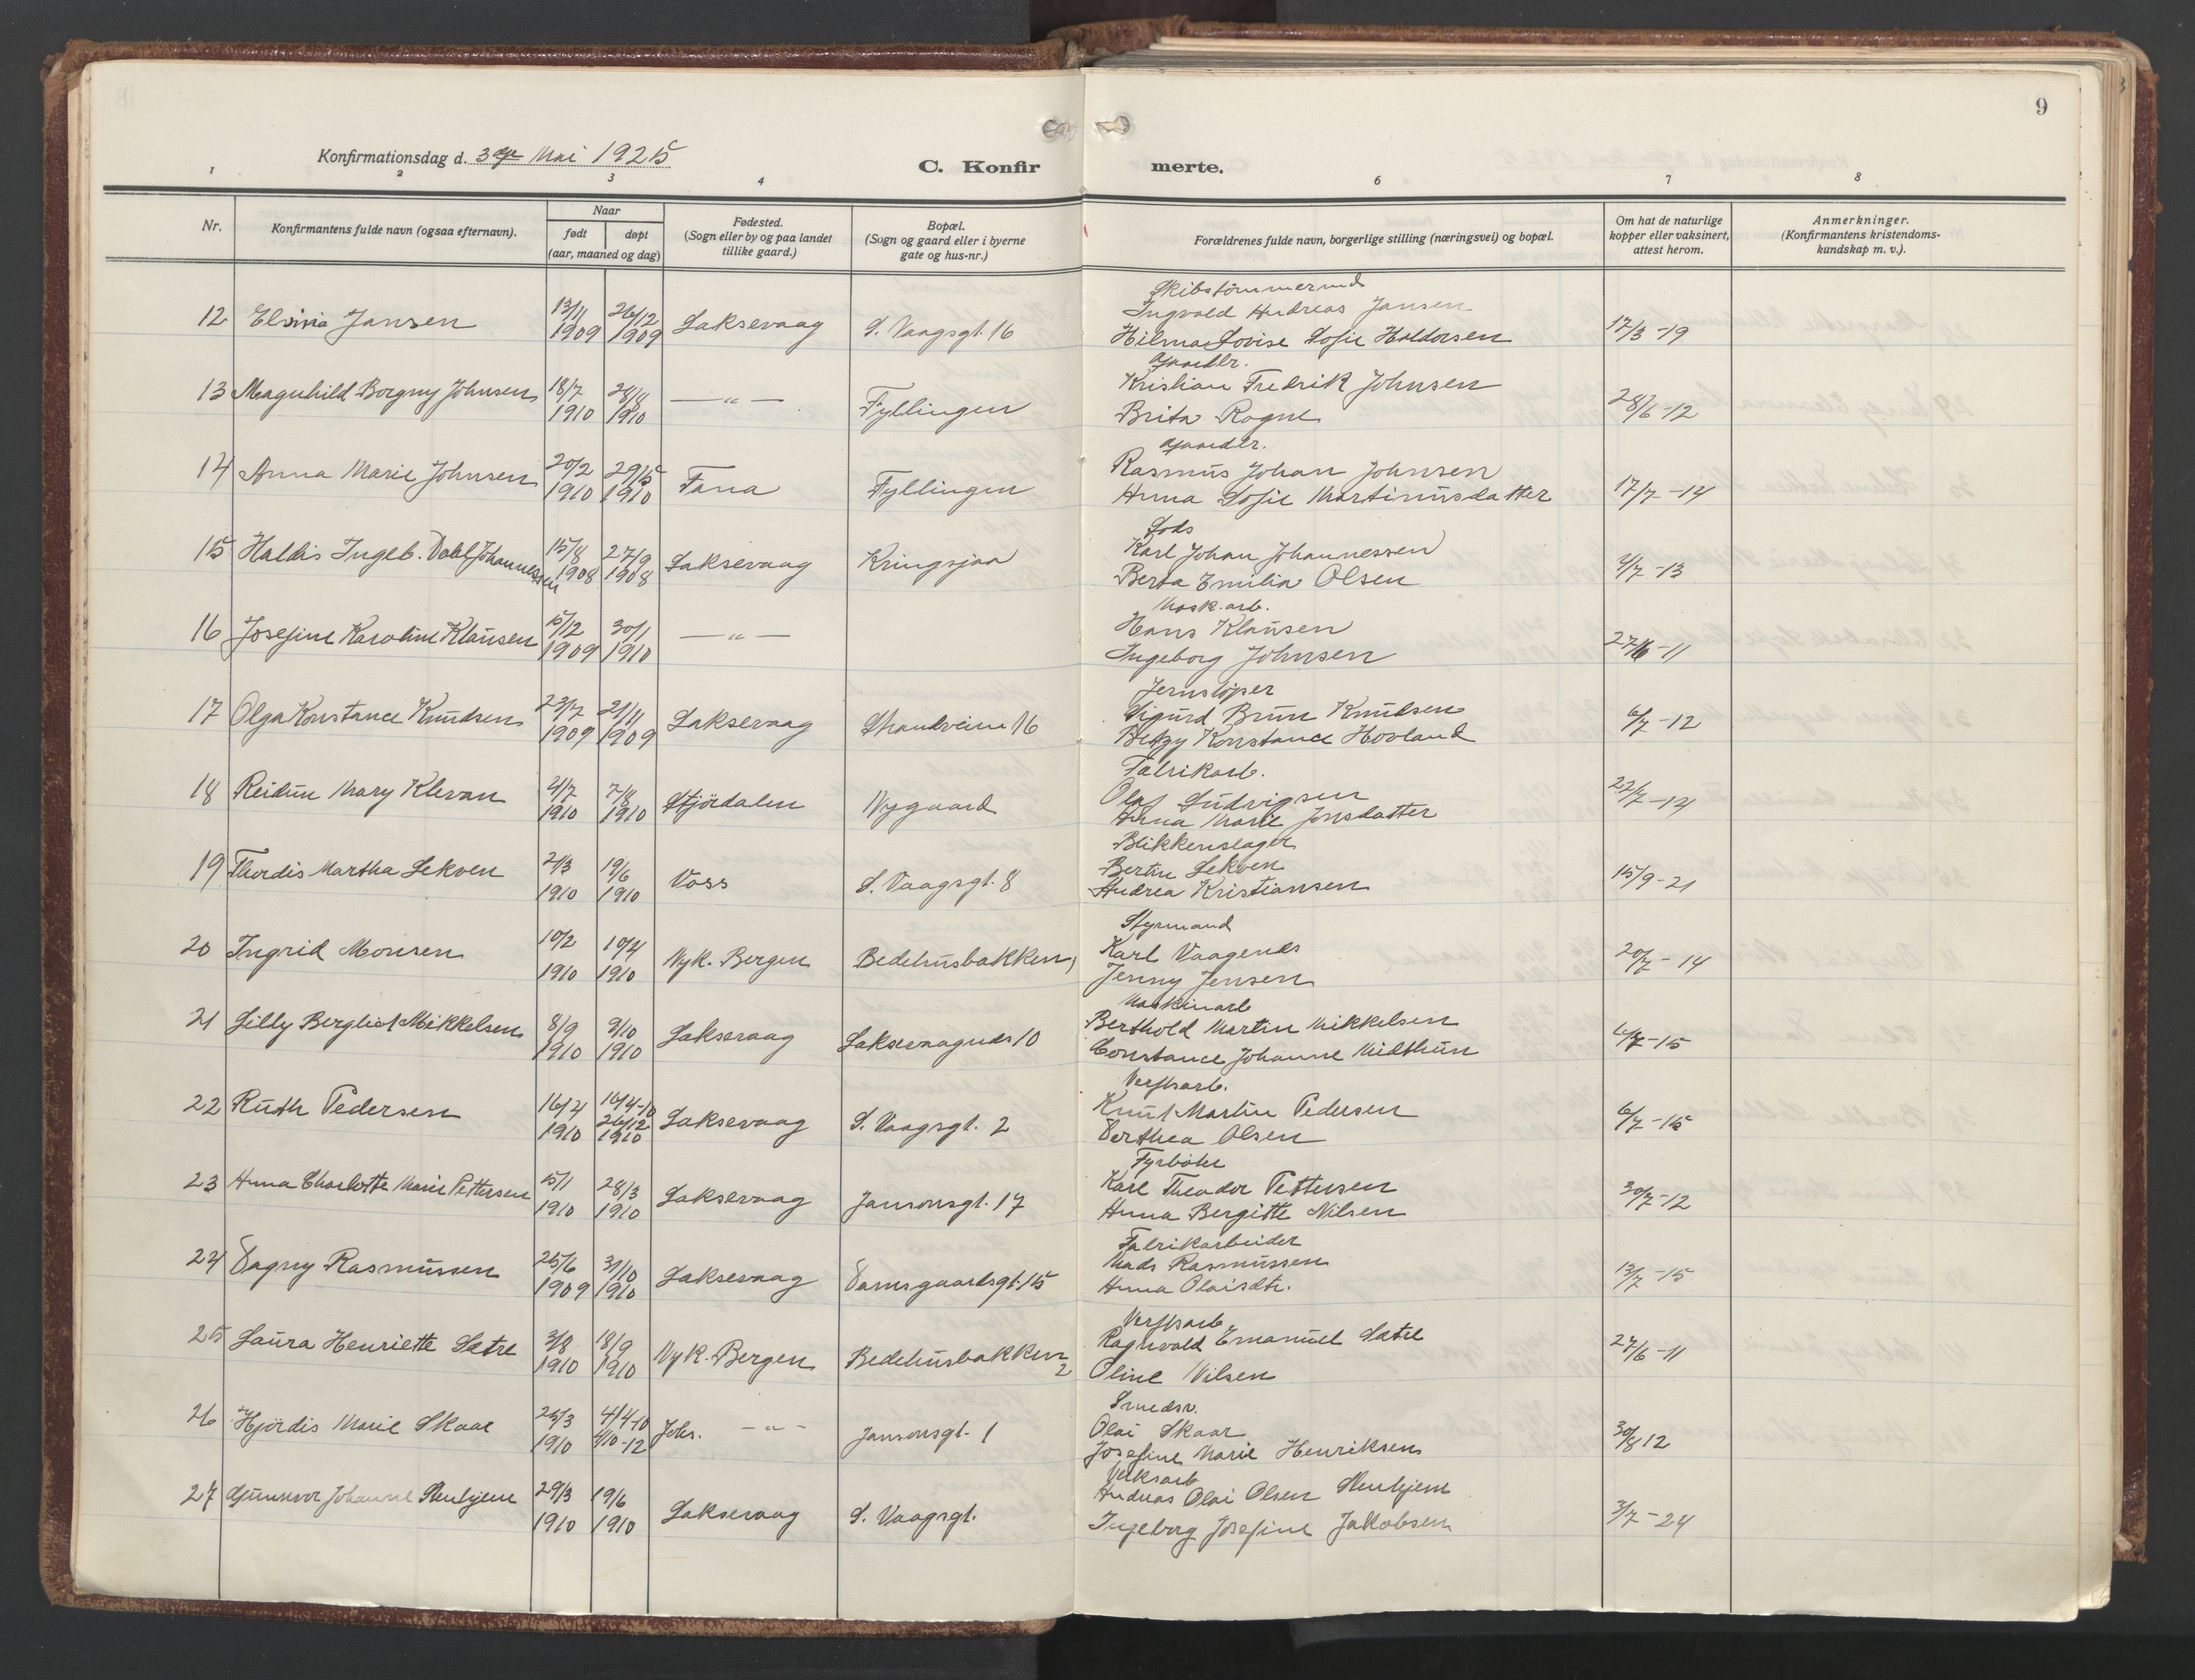 9
Konfirmationsdag d. 3dje Mai 1925
C. Konfirmerte.
1 2 3 4 6 7 8
Nr.
Konfirmantens fulde navn (ogsaa efternavn).
Naar
født døpt
(aar, maaned og dag)
Fødested.
(Sogn eller by og paa landet
tillike gaard.)
Bopæl.
(Sogn og gaard eller i byerne
gate og hus-nr.)
Forældrenes fulde navn, borgerlige stilling (næringsvei) og bopæl.
Om hat de naturlige
kopper eller vaksinert,
attest herom.
Anmerkninger.
(Konfirmantens kristendoms-
kundskap m. v.).
Skibstömmermd
12 Elvina Jansen 13/11 1909 26/12 1909 Laksevaag S. Vaagsgt. 16 Ingvald Andreas Jansen
Hilma Lovise Sofie Haldorsen 17/3-19
Gaardbr.
13 Magnhild Borgny Johnsen 18/7 1910 28/8 1910 — " — Fyllingen Kristian Fredrik Johnsen
Brita Rogne 28/6-12
Gaardbr.
14 Anna Marie Johnsen 20/2 1910 29/5 1910 Fana Fyllingen Rasmus Johan Johnsen
Anna Sofie Martinusdatter 17/7-14
Lods
15 Haldis Ingeb. Dahl Johannessen 15/8 1908 27/9 1908 Laksevaag Kringsjaa Karl Johan Johannessen
Berta Emilia Olsen 4/7-13
Mask. arb.
16 Josefine Karoline Klausen 5/12 1909 30/1 1910 — " — Hans Klausen
Ingeborg Johnsen 27/6-11
Jernstöper
17 Olga Konstance Knudsen 23/7 1909 21/11 1909 Laksevaag Strandveien 16 Sigurd Brun Knudsen
Betzy Konstance Hovland 6/7-12
Fabrikarb.
18 Reidun Mary Klevan 4/7 1910 7/8 1910 Stjördalen Nygaard Olaf Ludvigsen
Anna Marie Jonsdatter 22/7-14
Blikkenslager
19 Thordis Martha Lekven 2/3 1910 19/6 1910 Voss S. Vaagsgt. 8 Bertin Lekven
Andrea Kristiansen 15/9-21
Styrmand
20 Ingrid Monsen 10/2 1910 10/4 1910 Nyk. Bergen Bedehusbakken, Karl Vaagenes
Jenny Jensen 20/7-14
Maskinarb
21 Lilly Bergliot Mikkelsen 8/9 1910 9/10 1910 Laksevaag Laksevaagnes 10 Berthold Martin Mikkelsen
Constance Johanne Midthun 4/7-15
Verftsarb.
22 Ruth Pedersen 16/4 1910 16/4-10 26/12 1910 Laksevaag S. Vaagsgt. 2 Knut Martin Pedersen
Dorthea Olsen 6/7-15
Fyrböter
23 Anna Charlotte Marie Pettersen 5/1 1910 28/3 1910 Laksevaag Jansonsgt. 17 Karl Theodor Pettersen
Anna Bergitte Nilsen 30/7-12
Fabrikarbeider
24 Dagny Rasmussen 25/6 1909 31/10 1910 Laksevaag Damsgaardsgt. 15 Mads Rasmussen
Anna Olaisdtr. 13/7-15
Verftsarb.
25 Laura Henriette Sætre 3/8 1910 18/9 1910 Nyk. Bergen Bedehusbakken 2 Ragnvald Emanuel Sætre
Oline Nilsen 27/6-11
Smedsv.
26 Hjördis Marie Skaar 25/3 1910 4/4-10 4/10-12 Johs. — " — Jansonsgt. 1 Olai Skaar
Josefine Marie Henriksen 30/8 12
Verksarb
27 Gunnvor Johanne Stenhjem 29/3 1910 19/6 1910 Laksevaag S. Vaagsgt. Andreas Olai Olsen Stenhjem
Ingeborg Josefine Jakobsen 3/7-24